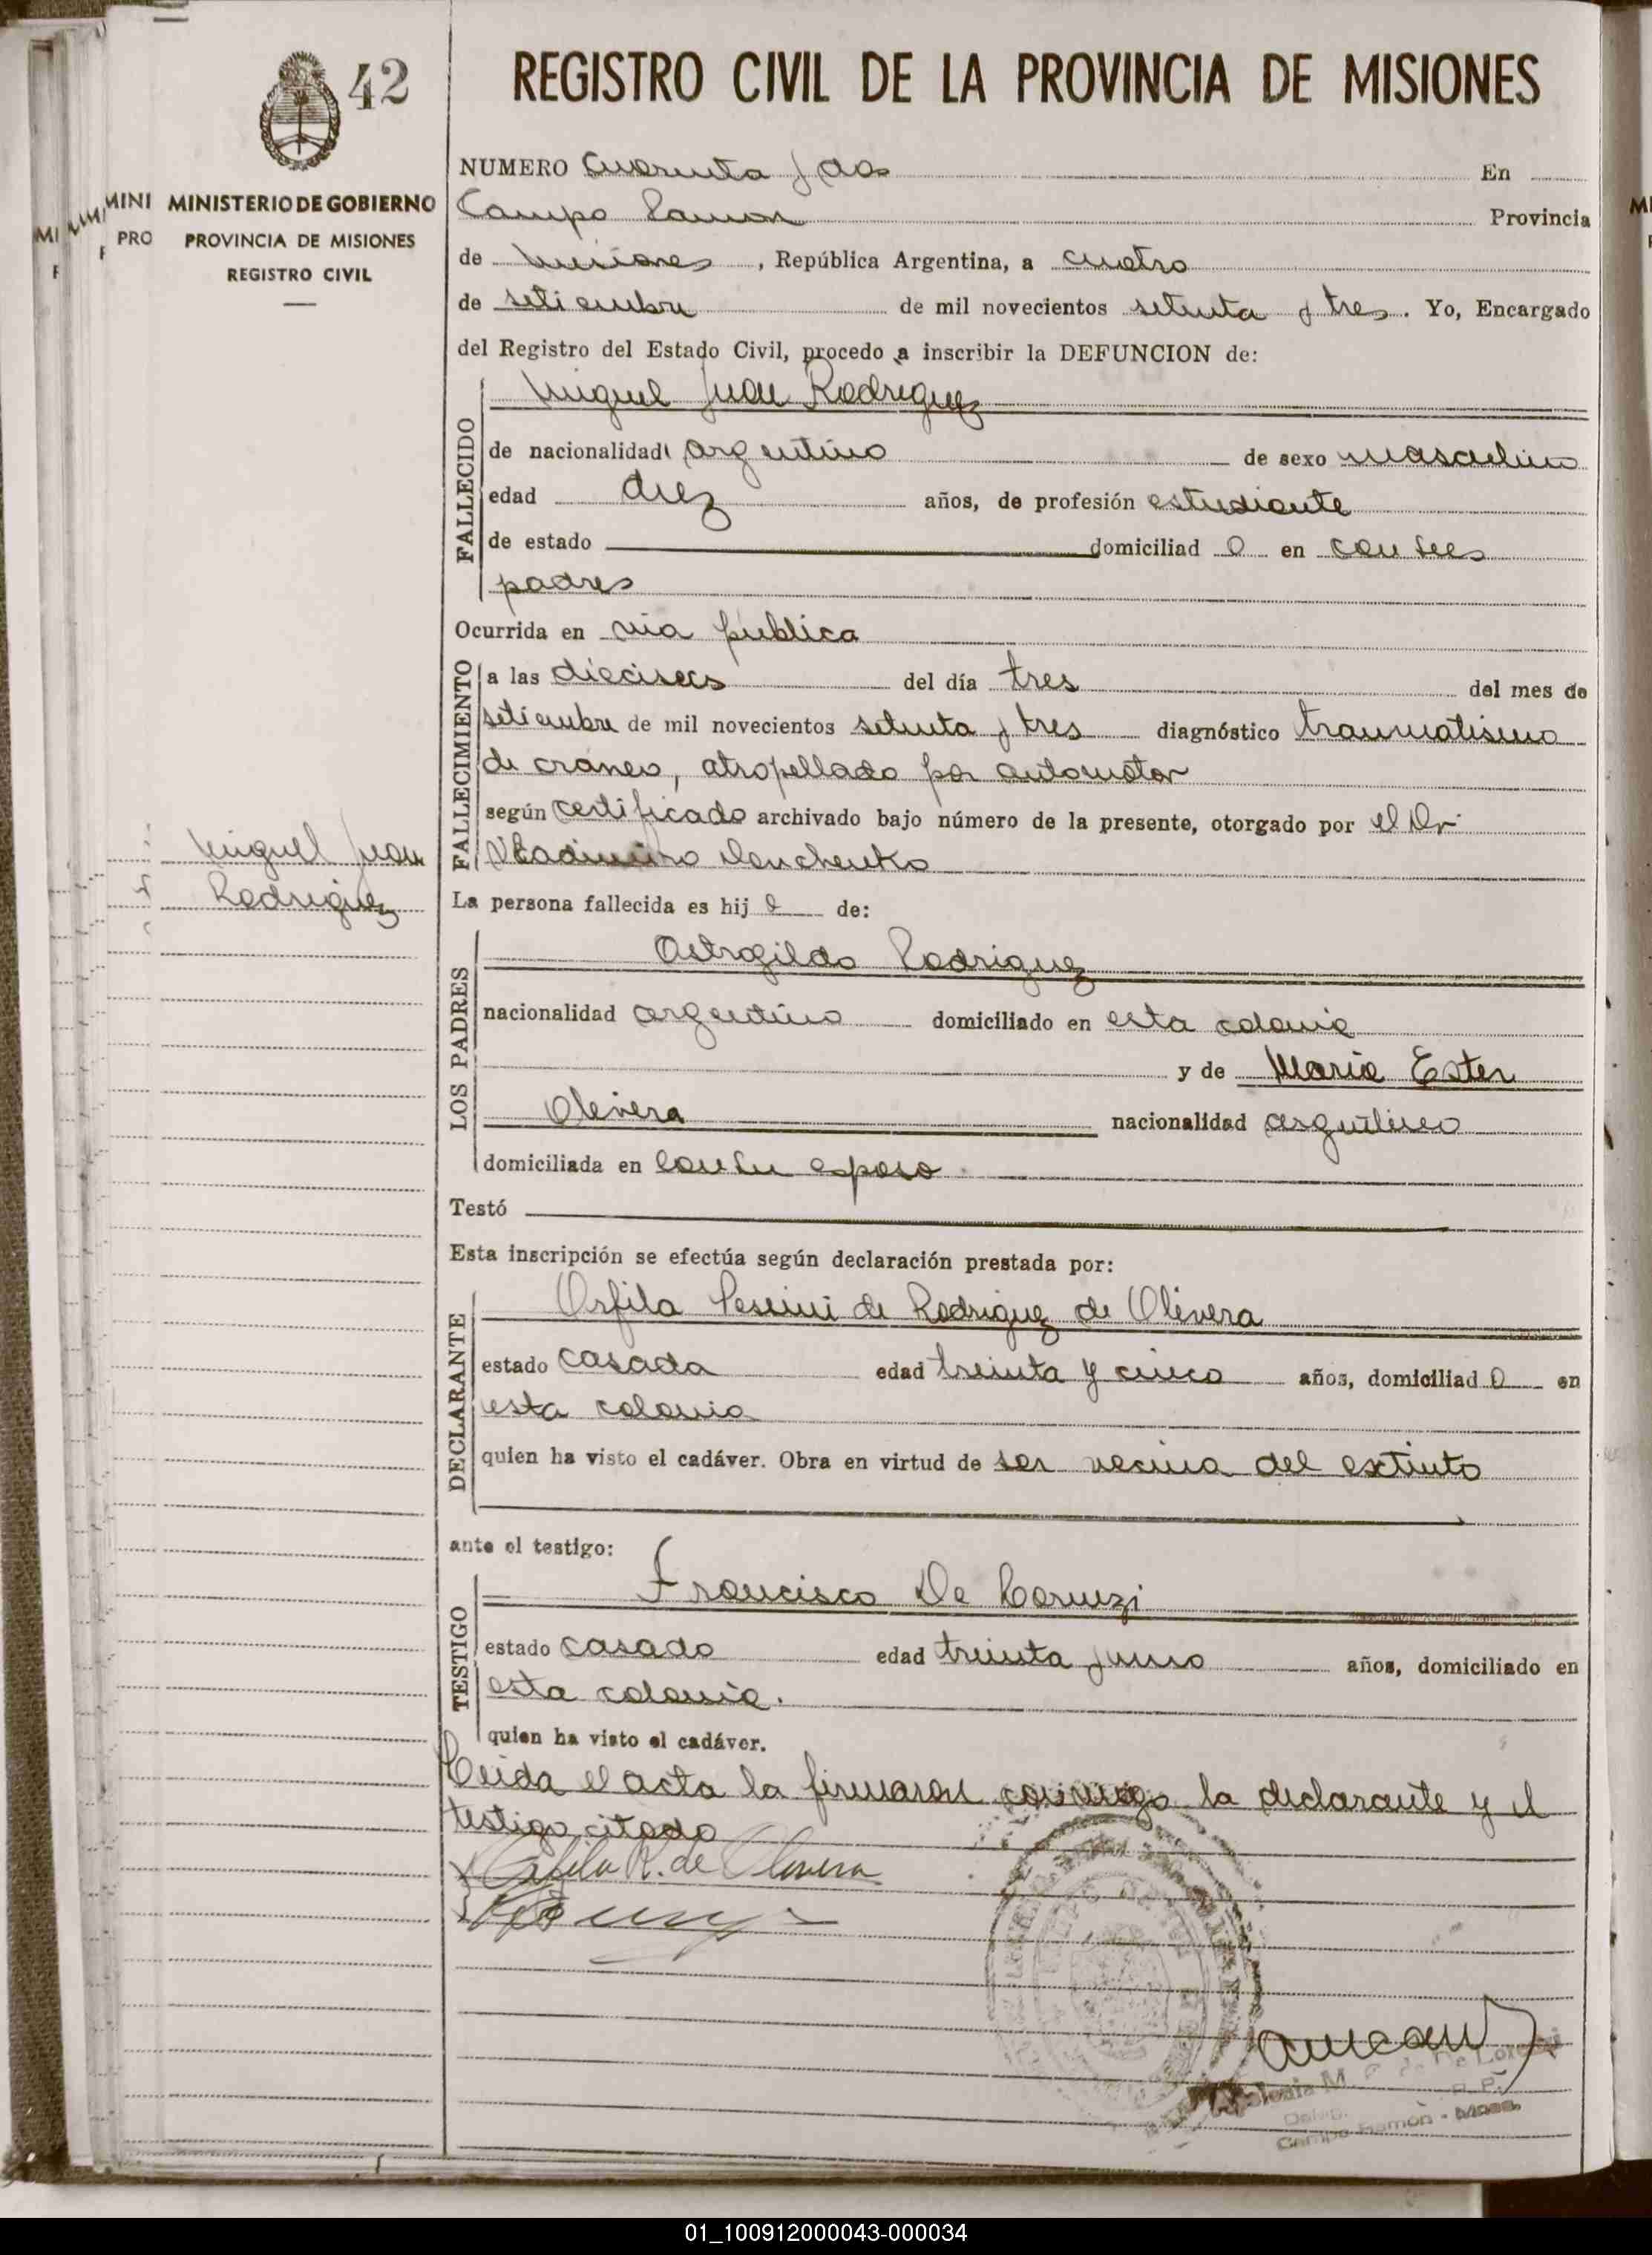 42
REGISTRO CIVIL DE LA PROVINCIA DE MISIONES
MINISTERIO DE GOBIERNO
PROVINCIA DE MISIONES
REGISTRO CIVIL
NUMERO Cuarenta y dos En
Campo Ramon Provincia
de Misiones, República Argentina, a cuatro
de setiembre de mil novecientos setenta y tres. Yo, Encargado
del Registro del Estado Civil, procedo a inscribir la DEFUNCION de:
Miguel Juan Rodriguez
FALLECIDO
de nacionalidad argentino de sexo masculino
edad diez años, de profesión estudiante
de estado domiciliad o en con sus
padres
Ocurrida en via publica
FALLECIMIENTO
a las dieciseis del día tres del mes de
setiembre de mil novecientos setenta y tres diagnóstico traumatismo
de cráneo, atropellado por automotor
según certificado archivado bajo número de la presente, otorgado por el Dr
Miguel Juan
Rodriguez
La persona fallecida es hij o de:
LOS PADRES
Astrogildo Rodriguez
nacionalidad argentino domiciliado en esta colonia
y de Maria Ester
Olivera nacionalidad argentina
domiciliada en con su esposo.
Testó
Esta inscripción se efectúa según declaración prestada por:
DECLARANTE
Orfila de Rodriguez de Olivera
estado casada edad treinta y cinco años, domiciliad a en
esta colonia
quien ha visto el cadáver. Obra en virtud de ser vecina del extinto
ante el testigo:
TESTIGO
Francisco De
estado casado edad treinta y uno años, domiciliado en
esta colonia.
quien ha visto el cadáver.
Leida el acta la firmaron conmigo la declarante y el
testigo citado
Orfila R. de Olivera
Campo Ramón - Mnes.
01_100912000043-000034